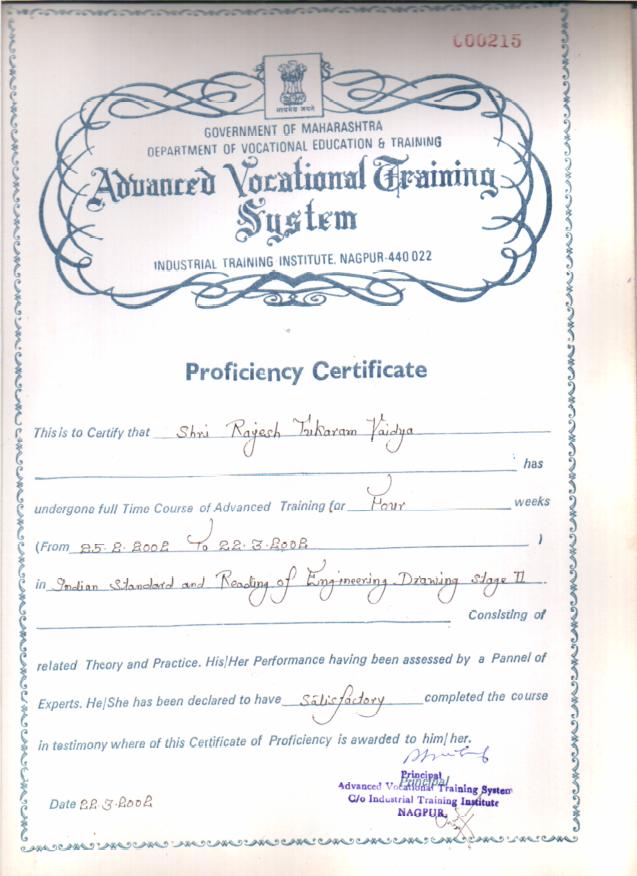 000215
सत्यमेव जयते
GOVERNMENT OF MAHARASHTRA
DEPARTMENT OF VOCATIONAL EDUCATION & TRAINING
Advanced Vocational Training
System
INDUSTRIAL TRAINING INSTITUTE, NAGPUR-440 022
Proficiency Certificate
This is to Certify that Shri Rajesh Tukaram Vaidya
has
undergone full Time Course of Advanced Training for Four weeks
(From 25.2.2002 To 22.3.2002 )
in Indian Standard and Reading of Engineering Drawing stage II
Consisting of
related Theory and Practice. His/Her Performance having been assessed by a Pannel of
Experts. He/She has been declared to have Satisfactory completed the course
in testimony where of this Certificate of Proficiency is awarded to him/her.
Principal
Principal
Advanced Vocational Training System
C/o Industrial Training Institute
NAGPUR.
Date 22.3.2002